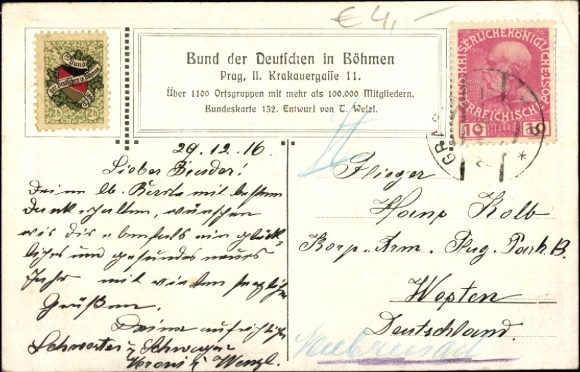 € 4,-
Bund der Deutschen in Böhmen
Prag, II. Krakauergasse 11.
Über 1100 Ortsgruppen mit mehr als 100.000 Mitgliedern.
Bundeskarte 132. Entwurf von T. Weizl.
29.12.16.
Lieber Bruder!
Deine lb. Karte mit bestem
Dank erhalten, wünschen
wir dir ebenfalls ein glück-
liches und gesundes neues
Jahr mit vielen herzlichen
Grüßen
Deine aufrichtige
Schwester u. Schwager
Wenzl.
Flieger
Hans Kolb
Korp. Arm. Flug. Park. B.
Westen
Deutschland.
KAISERLICHE KÖNIGLICHE
ÖSTERREICHISCHE POST
10 HELLER 10